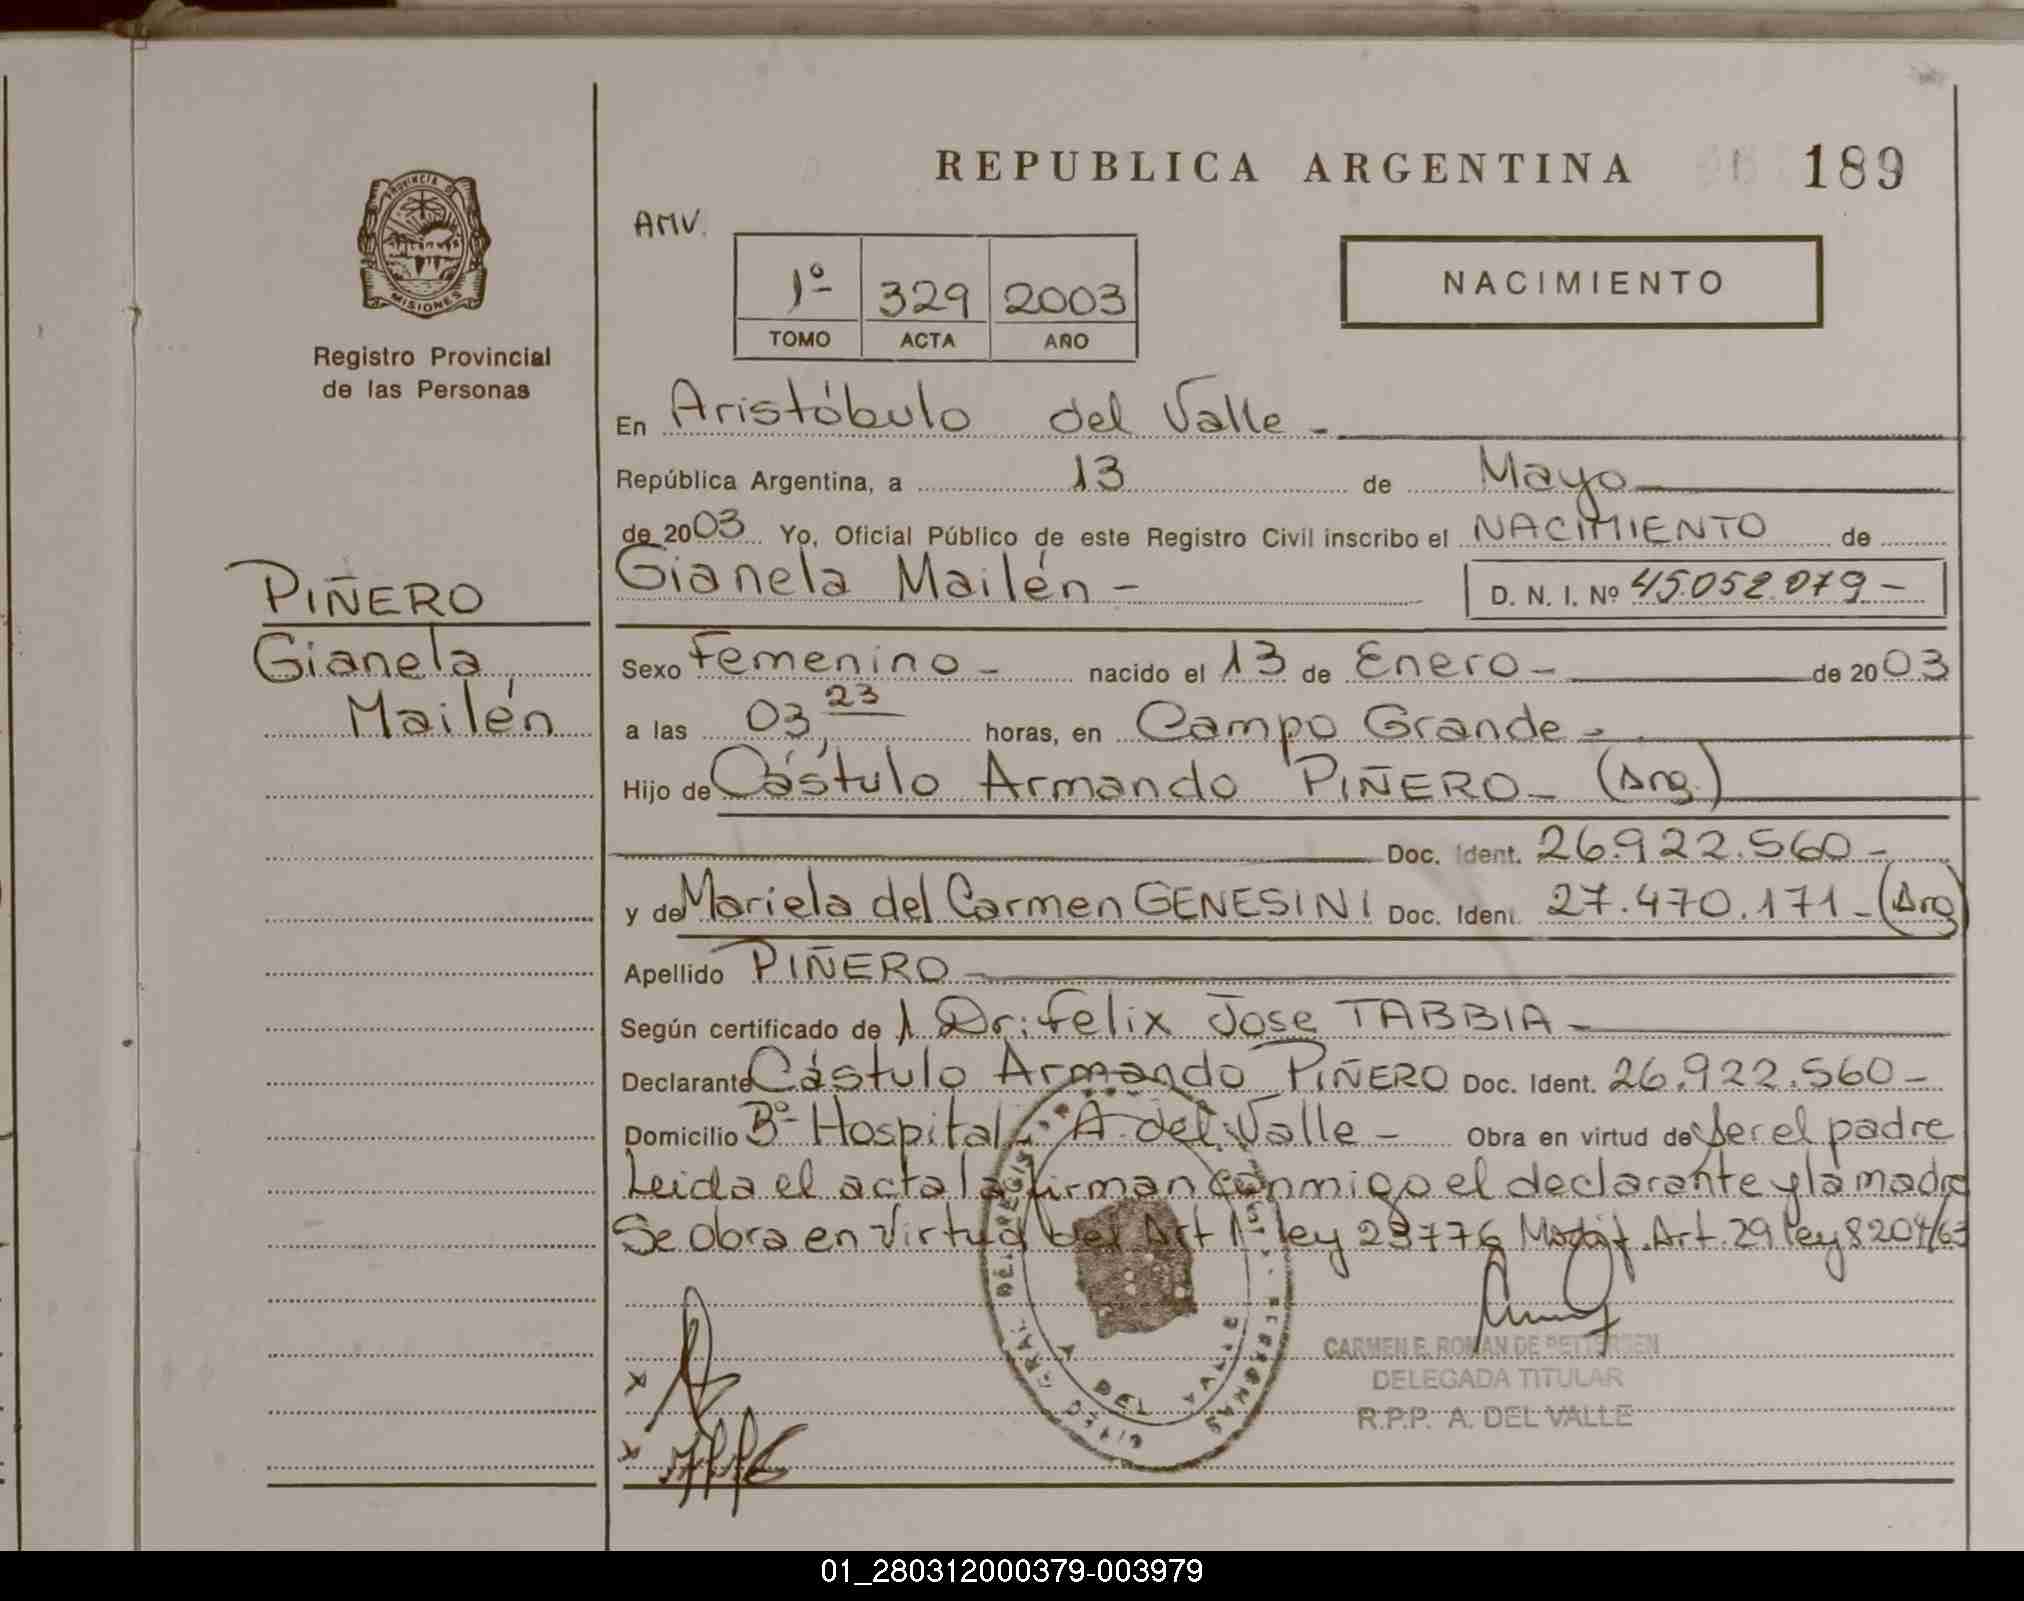 REPUBLICA ARGENTINA 189
PROVINCIA DE
MISIONES
Registro Provincial
de las Personas
AMV.
1º 329 2003
TOMO ACTA AÑO
NACIMIENTO
En Aristóbulo del Valle -
República Argentina, a 13 de Mayo
de 2003 Yo, Oficial Público de este Registro Civil inscribo el NACIMIENTO de
Gianela Mailén - D. N. I. Nº 45.052.079 -
PIÑERO
Gianela
Mailén
Sexo Femenino - nacido el 13 de Enero - de 2003
a las 03,23 horas, en Campo Grande -
Hijo de Cástulo Armando PIÑERO - (Arg.)
Doc. Ident. 26.922.560 -
y de Mariela del Carmen GENESINI Doc. Ident. 27.470.171 - (Arg)
Apellido PIÑERO
Según certificado de 1 Dr: Felix Jose TABBIA -
Declarante Cástulo Armando PIÑERO Doc. Ident. 26.922.560 -
Domicilio Bº Hospital - A. del Valle - Obra en virtud de Ser el padre
Leida el acta la firman conmigo el declarante y la madre
Se obra en Virtud del Art 1º ley 23776 Modif. Art. 29 ley 8204/63
CARMEN E. ROMAN DE PETTERSEN
DELEGADA TITULAR
R.P.P. A. DEL VALLE
x
x
01_280312000379-003979